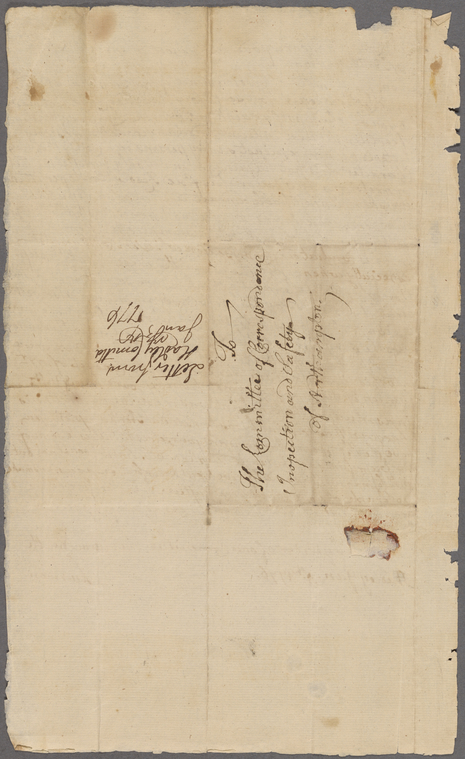 To
The Committee of Correspondence
Inspection and Safety
of Northampton.
Letter from
Hadley Comittee
Jany
1776